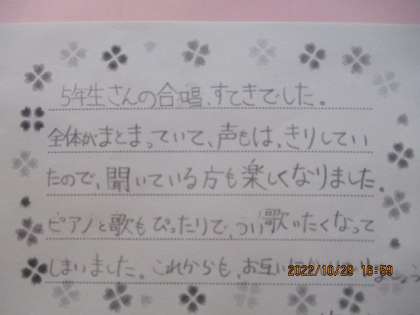 5年生さんの合唱、すてきでした。
全体がまとまっていて、声もは、きりしてい
たので、聞いている方も楽しくなりました。
ピアノと歌もぴったりで、つい歌いたくなって
しまいました。これからも、お互いに
2022/10/29 16:59